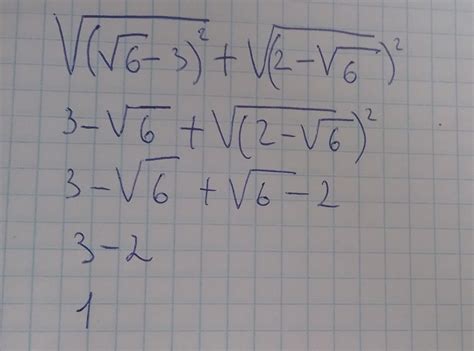 √(√6-3)² + √(2-√6)²
3-√6 + √(2-√6)²
3-√6 + √6-2
3-2
1